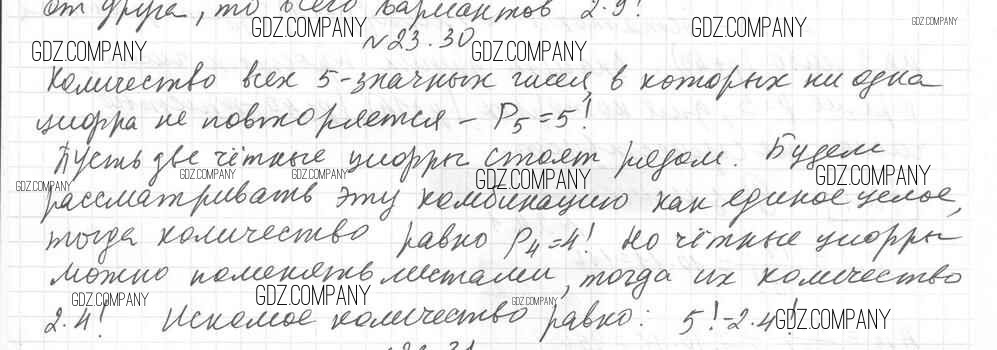 от друга, то всего вариантов 2·9!
№23.30
Количество всех 5-значных чисел, в которых ни одна
цифра не повторяется – P₅=5!
Пусть две чётные цифры стоят рядом. Будем
рассматривать эту комбинацию как единое целое,
тогда количество равно P₄=4! Но чётные цифры
можно поменять местами, тогда их количество
2·4! Искомое количество равно: 5!-2·4!
GDZ.COMPANY
GDZ.COMPANY
GDZ.COMPANY
GDZ.COMPANY
GDZ.COMPANY
GDZ.COMPANY
GDZ.COMPANY
GDZ.COMPANY
GDZ.COMPANY
GDZ.COMPANY
GDZ.COMPANY
GDZ.COMPANY
GDZ.COMPANY
GDZ.COMPANY